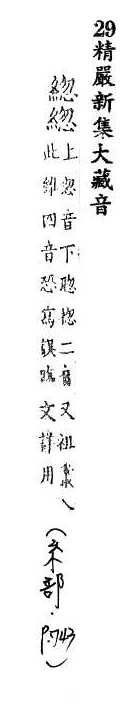 29精嚴新集大藏音
緫緫上忽音下聡揔二音又祖
此雖四音恐寫誤臨文詳用
(糸部.P.743)